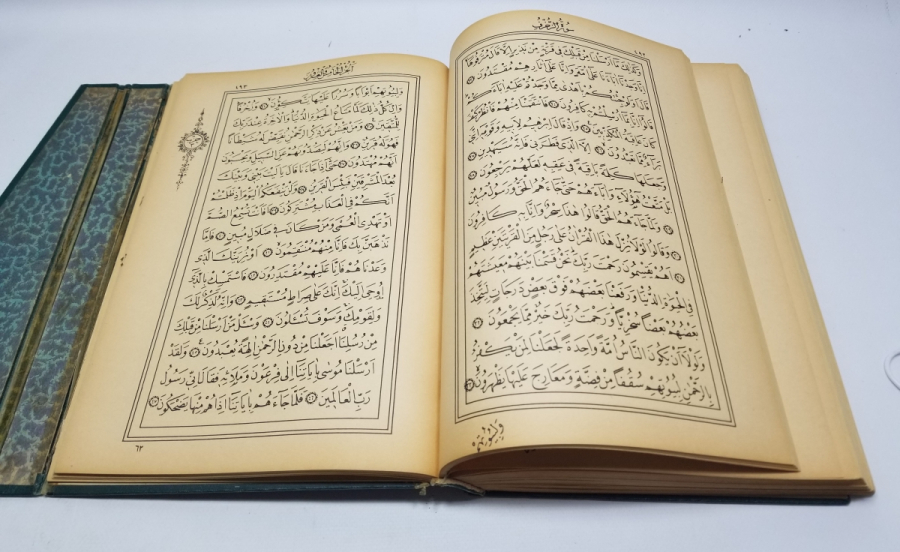 سورة الزخرف
وكذلك ما ارسلنا من قبلك في قرية من نذير الا قال مترفوها
انا وجدنا اباءنا على امة وانا على اثارهم مقتدون
قال اولو جئتكم باهدى مما وجدتم عليه اباءكم
قالوا انا بما ارسلتم به كافرون فانتقمنا منهم فانظر كيف
كان عاقبة المكذبين واذ قال ابرهيم لابيه وقومه انني
براء مما تعبدون الا الذي فطرني فانه سيهدين
وجعلها كلمة باقية في عقبه لعلهم يرجعون
بل متعت هؤلاء واباءهم حتى جاءهم الحق ورسول مبين
ولما جاءهم الحق قالوا هذا سحر وانا به كافرون
وقالوا لولا نزل هذا القران على رجل من القريتين عظيم
اهم يقسمون رحمت ربك نحن قسمنا بينهم معيشتهم
في الحيوة الدنيا ورفعنا بعضهم فوق بعض درجات ليتخذ
بعضهم بعضا سخريا ورحمت ربك خير مما يجمعون
ولولا ان يكون الناس امة واحدة لجعلنا لمن يكفر
بالرحمن لبيوتهم سقفا من فضة ومعارج عليها يظهرون
ولبيوتهم
الجزء الخامس والعشرون
ولبيوتهم ابوابا وسررا عليها يتكون وزخرفا
وان كل ذلك لما متاع الحيوة الدنيا والاخرة عند ربك
للمتقين ومن يعش عن ذكر الرحمن نقيض له شيطانا
فهو له قرين وانهم ليصدونهم عن السبيل ويحسبون
انهم مهتدون حتى اذا جاءنا قال يا ليت بيني وبينك
بعد المشرقين فبئس القرين ولن ينفعكم اليوم اذ ظلمتم
انكم في العذاب مشتركون افانت تسمع الصم
او تهدي العمي ومن كان في ضلال مبين فاما
نذهبن بك فانا منهم منتقمون او نرينك الذي
وعدناهم فانا عليهم مقتدرون فاستمسك بالذي
اوحي اليك انك على صراط مستقيم وانه لذكر لك
ولقومك وسوف تسئلون وسئل من ارسلنا من قبلك
من رسلنا اجعلنا من دون الرحمن الهة يعبدون ولقد
ارسلنا موسى باياتنا الى فرعون وملائه فقال اني رسول
رب العالمين فلما جاءهم باياتنا اذا هم منها يضحكون